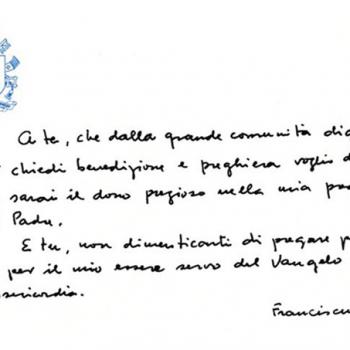 A te, che dalla grande comunità
chiedi benedizione e preghiera voglio
sarai il dono prezioso nella mia
Padre.
E tu, non dimenticarti di pregare
per il mio essere servo del Vangelo
sericordia.
Franciscu